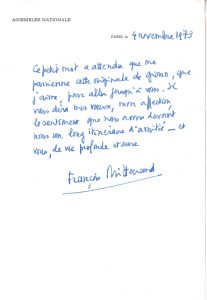 ASSEMBLÉE NATIONALE
PARIS, LE 4 novembre 1973
Ce petit mot a attendu que me
parvienne cette originale de Giono, que
j'aime, pour aller jusqu'à vous. Il
vous dira mes vœux, mon affection,
le sentiment que nous nous devrons
nous un long itinéraire d'amitié — et
vous, de vie profonde et
François Mitterrand